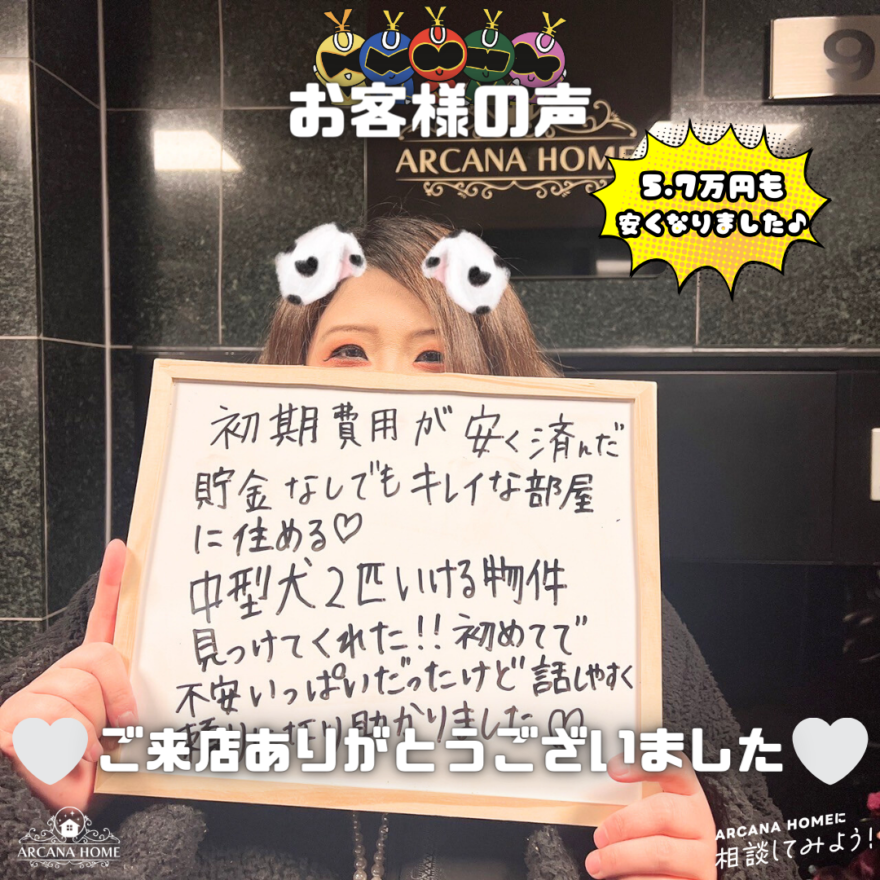 お客様の声
ARCANA HOME
9
5.7万円も
安くなりました♪
初期費用が安く済んだ
貯金なしでもキレイな部屋
に住める♡
中型犬2匹いける物件
見つけてくれた!!初めてで
不安いっぱいだったけど話しやすく
助かりました♡
ご来店ありがとうございました
ARCANA HOME
ARCANA HOMEに
相談してみよう!